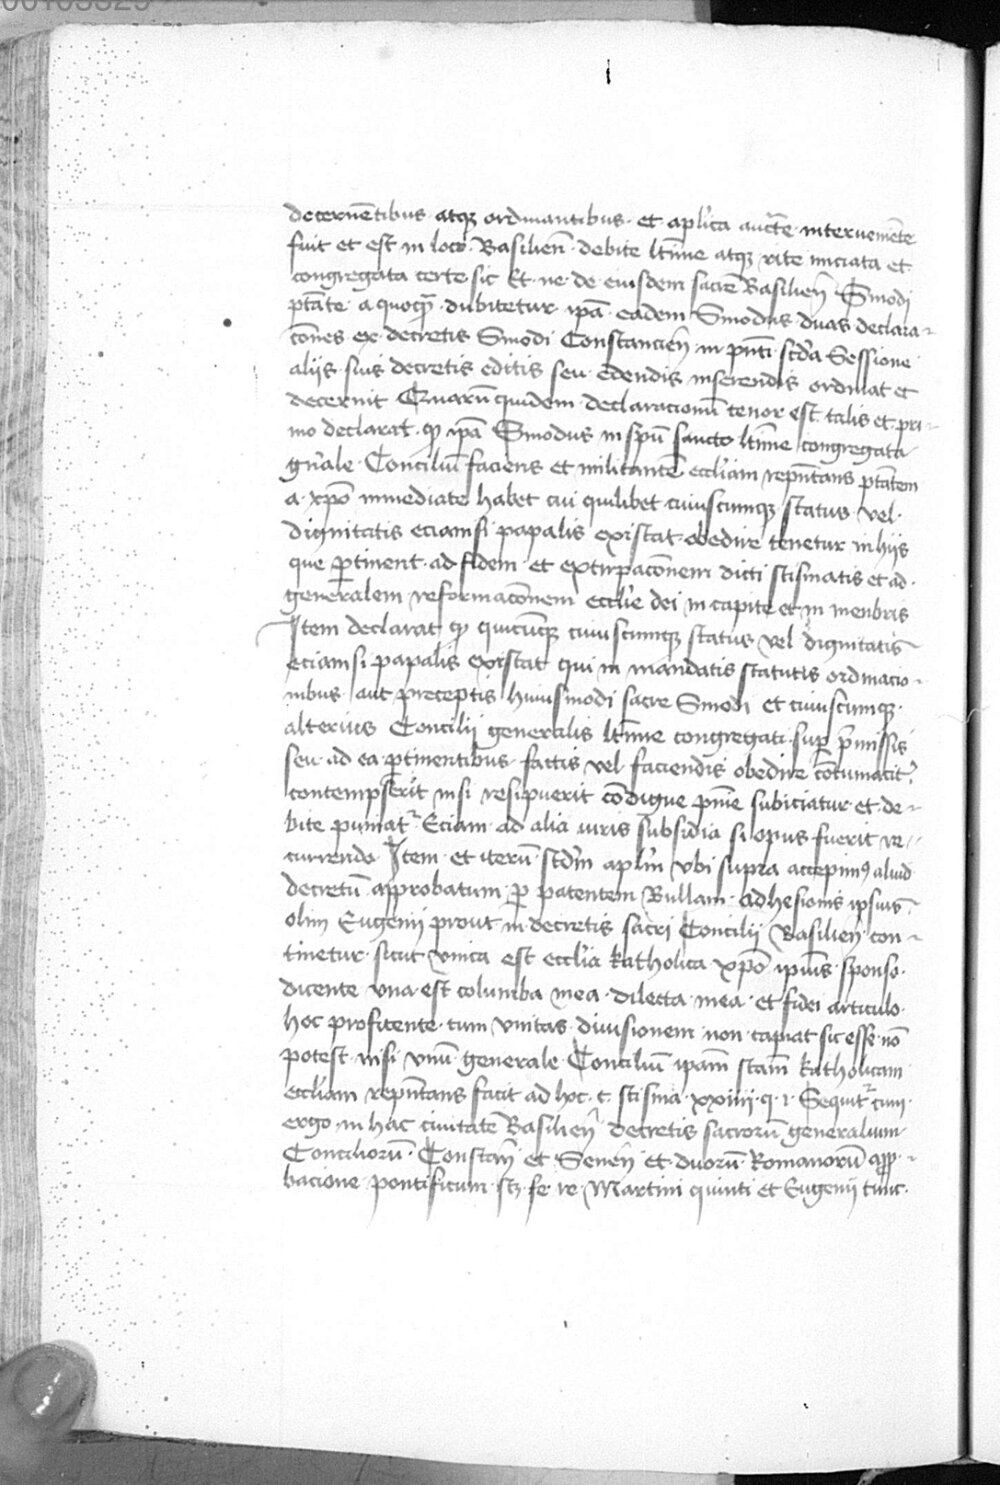 decernētibus atqꝫ ordinantibus et aplica auctte interveniēte
fuit et est in loco Basilien̄ debite ltīme atqꝫ rite iniciata et
congregata certe sic Et ne de eiusdem sacre Basilien̄ Sinodi
ptāte a quoqm̄ dubitetur ipā eadem Sinodus duas declara-
cōnes ex decretis Sinodi Constancien̄ in pn̄ti scd̄a Sessione
aliis suis decretis editis seu edendis inserendis ordinat et
decernit Quarū quidem declaracionū tenor est talis et pri-
mo declarat ꝙ ipā Sinodus in spū sancto ltīme congregata
gn̄ale Conciliū faciens et militantē eccliam repn̄tans ptātem
a xpo immediate habet cui quilibet cuiuscumqꝫ status vel
dignitatis eciamsi papalis existat obedire tenetur in hiis
que ꝑtinent ad fidem et extirpacōnem dicti scismatis et ad
generalem reformacōnem ecclie dei in capite et in menbris
Item declarat ꝙ quicūqꝫ cuiuscumqꝫ status vel dignitatis
eciamsi papalis existat qui in mandatis statutis ordinacio-
nibus aut preceptis huiusmodi sacre Sinodi et cuiuscumqꝫ
alterius Concilii generalis ltīme congregati suꝑ p̄missis
seu ad ea ꝑtinentibus factis vel faciendis obedire cōtumacit̄
contempserit nisi resipuerit cōdigne pn̄ie subiciatur et de-
bite puniat̄ Eciam ad alia iuris subsidia si opus fuerit re-
currendo Item et iterū scdm̄ aplm̄ vbi supra accepimꝰ aliud
decretū approbatum ꝑ patentem Bullam adhesionis ipsius
olim Eugenii prout in decretis sacri Concilii Basilien̄ con-
tinetur sicut vnica est ecclia katholica xpo ipius sponso
dicente vna est columba mea dilecta mea et fidei articulo
hoc profitente cum vnitas diuisionem non capiat sic esse nō
potest nisi vnū generale Conciliū ipam̄ scam̄ katholicam
eccliam repn̄tans facit ad hoc c. scisma xxiiii q. i. Sequit̄ cum
ergo in hac ciuitate Basilien̄ decretis sacrorū generalium
Conciliorū Constan̄ et Senen̄ et duorū Romanorū appro-
bacione pontificum scꝫ fe re Martini quinti et Eugenii tunc